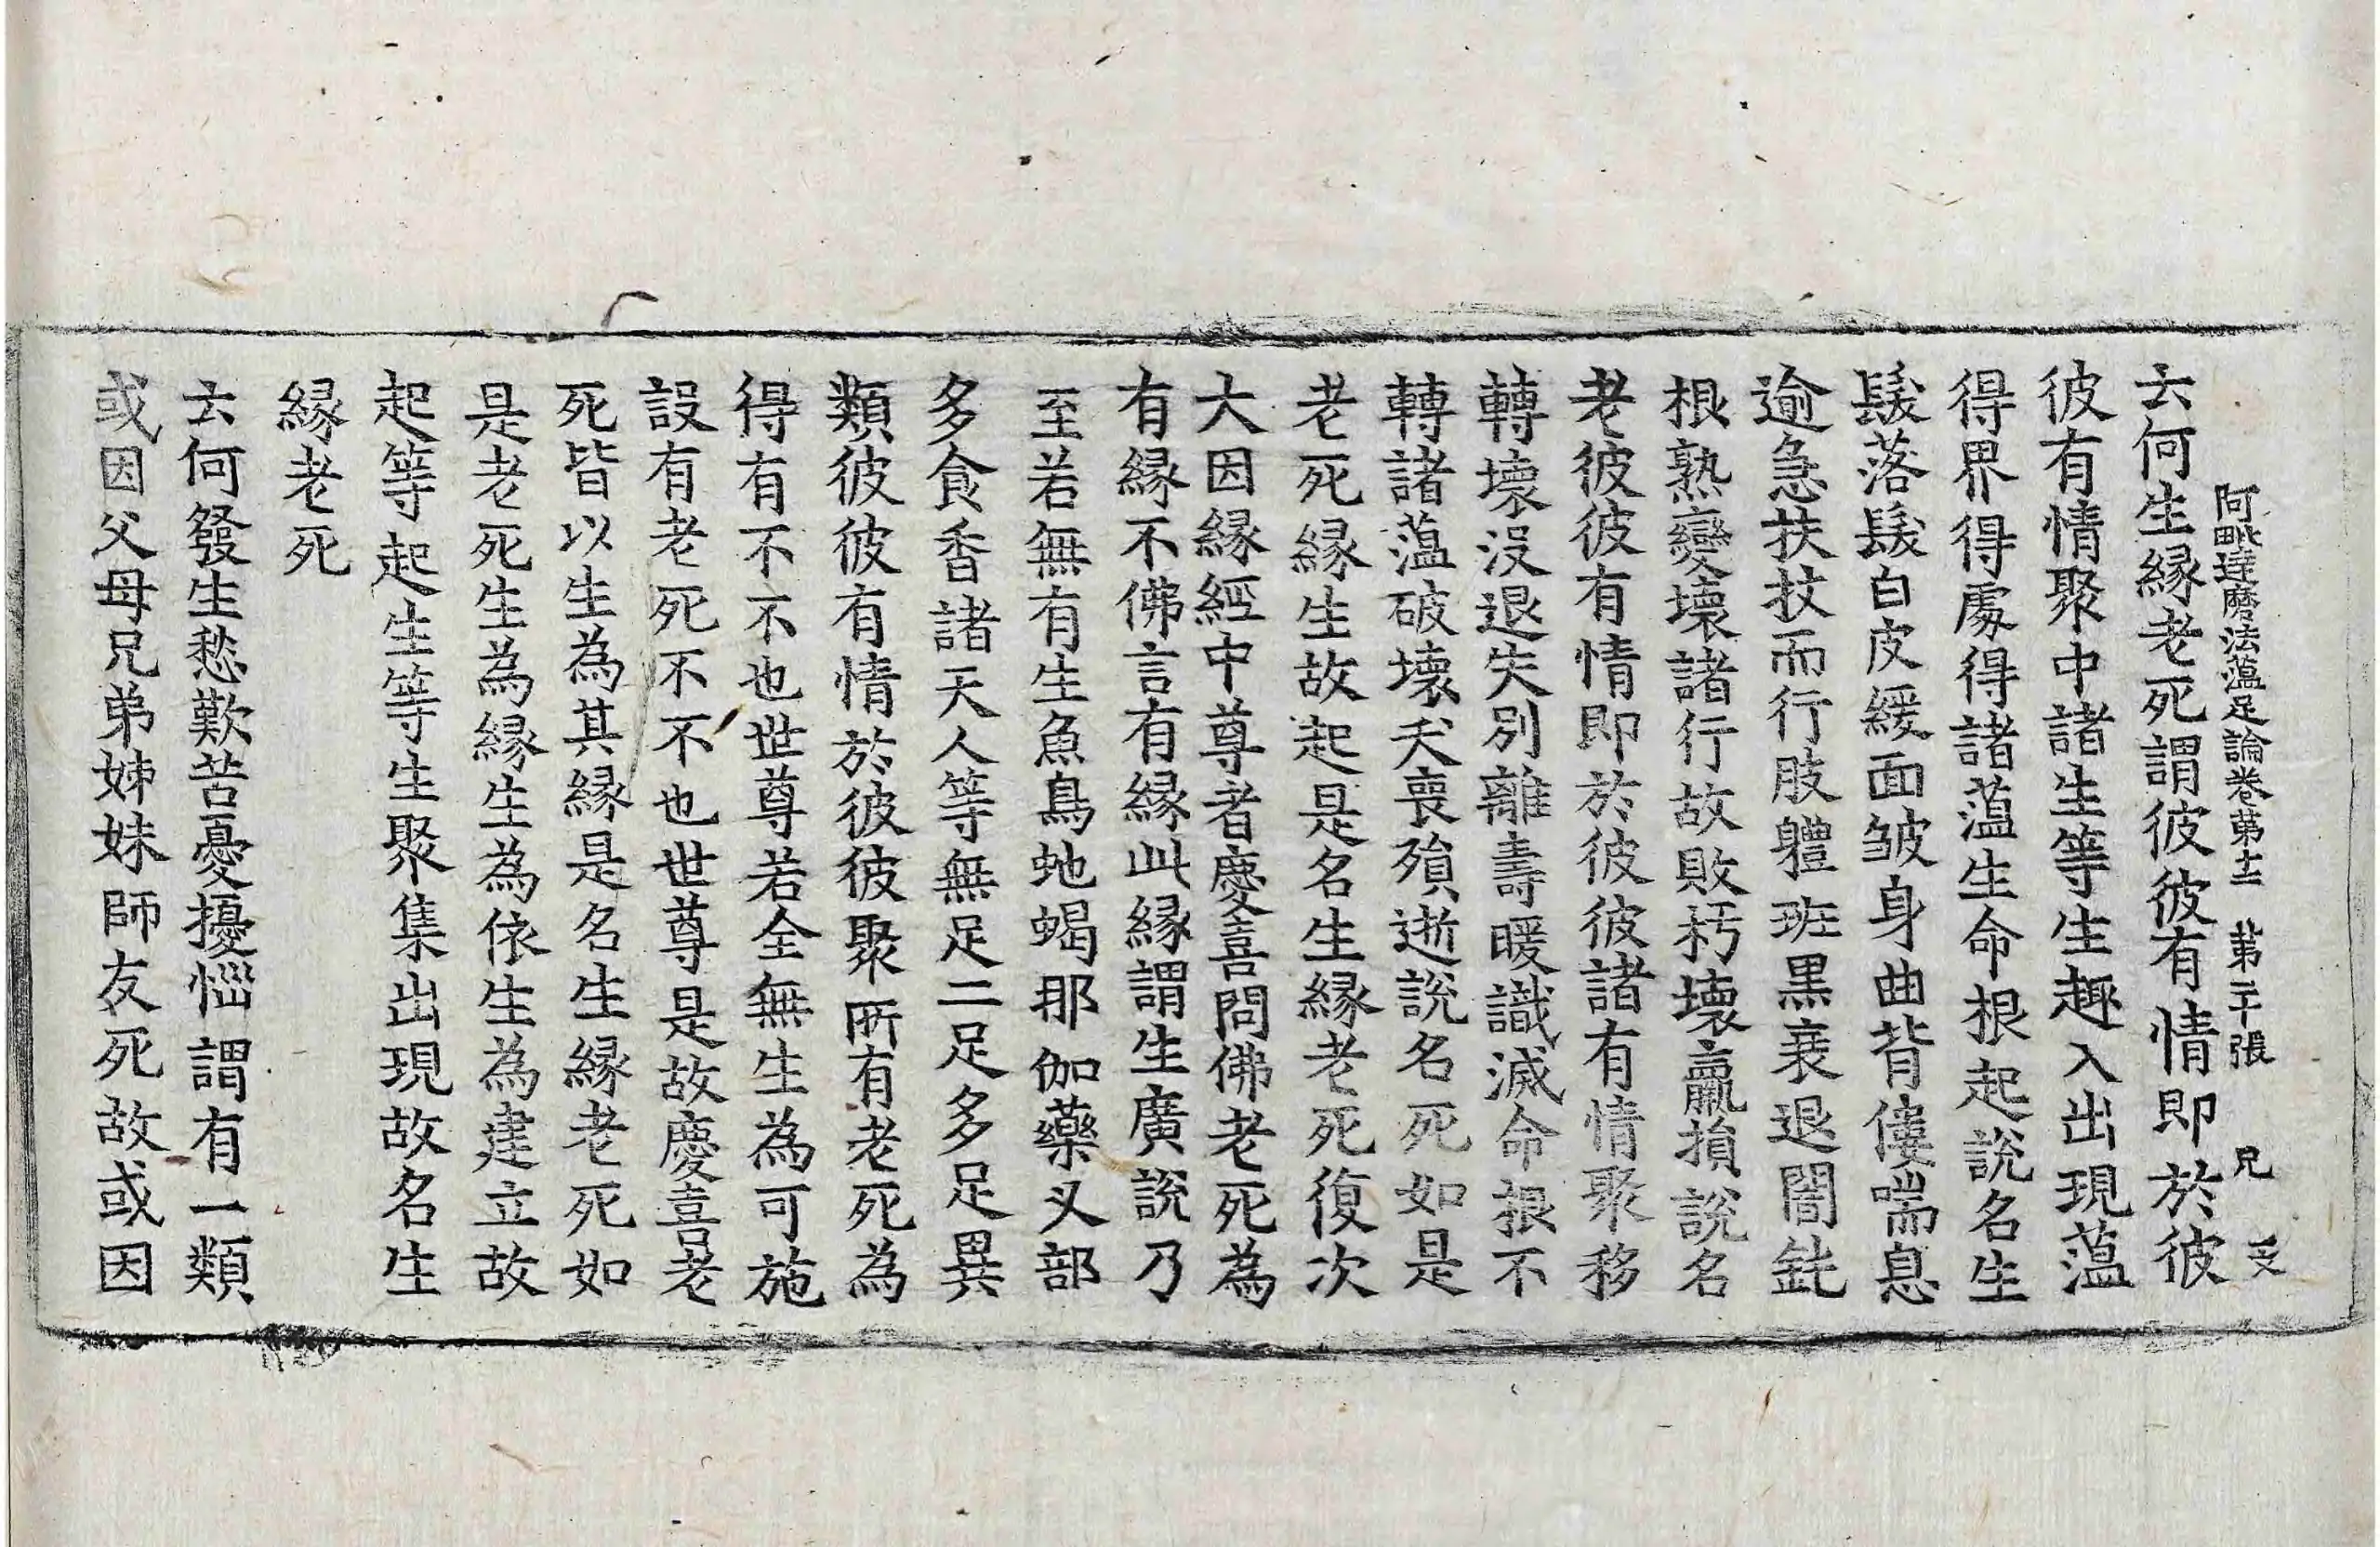 阿毗達磨法蘊足論卷第十二 第二十張 兄
云何生緣老死謂彼彼有情即於彼
彼有情聚中諸生等生趣入出現蘊
得界得處得諸蘊生命根起說名生
髮落髮白皮緩面皺身曲背僂喘息
逾急扶杖而行肢體斑黑衰退闇鈍
根熟變壞諸行故敗朽壞羸損說名
老彼彼有情即於彼彼諸有情聚移
轉壞沒退失別離壽暖識滅命根不
轉諸蘊破壞夭喪殞逝說名死如是
老死緣生故起是名生緣老死復次
大因緣經中尊者慶喜問佛老死為
有緣不佛言有緣此緣謂生廣說乃
至若無有生魚鳥虵蝎那伽藥叉部
多食香諸天人等無足二足多足異
類彼彼有情於彼彼聚所有老死為
得有不不也世尊若全無生為可施
設有老死不不也世尊是故慶喜老
死皆以生為其緣是名生緣老死如
是老死生為緣生為依生為建立故
起等起生等生聚集出現故名生
緣老死
云何發生愁歎苦憂擾惱謂有一類
或因父母兄弟姊妹師友死故或因